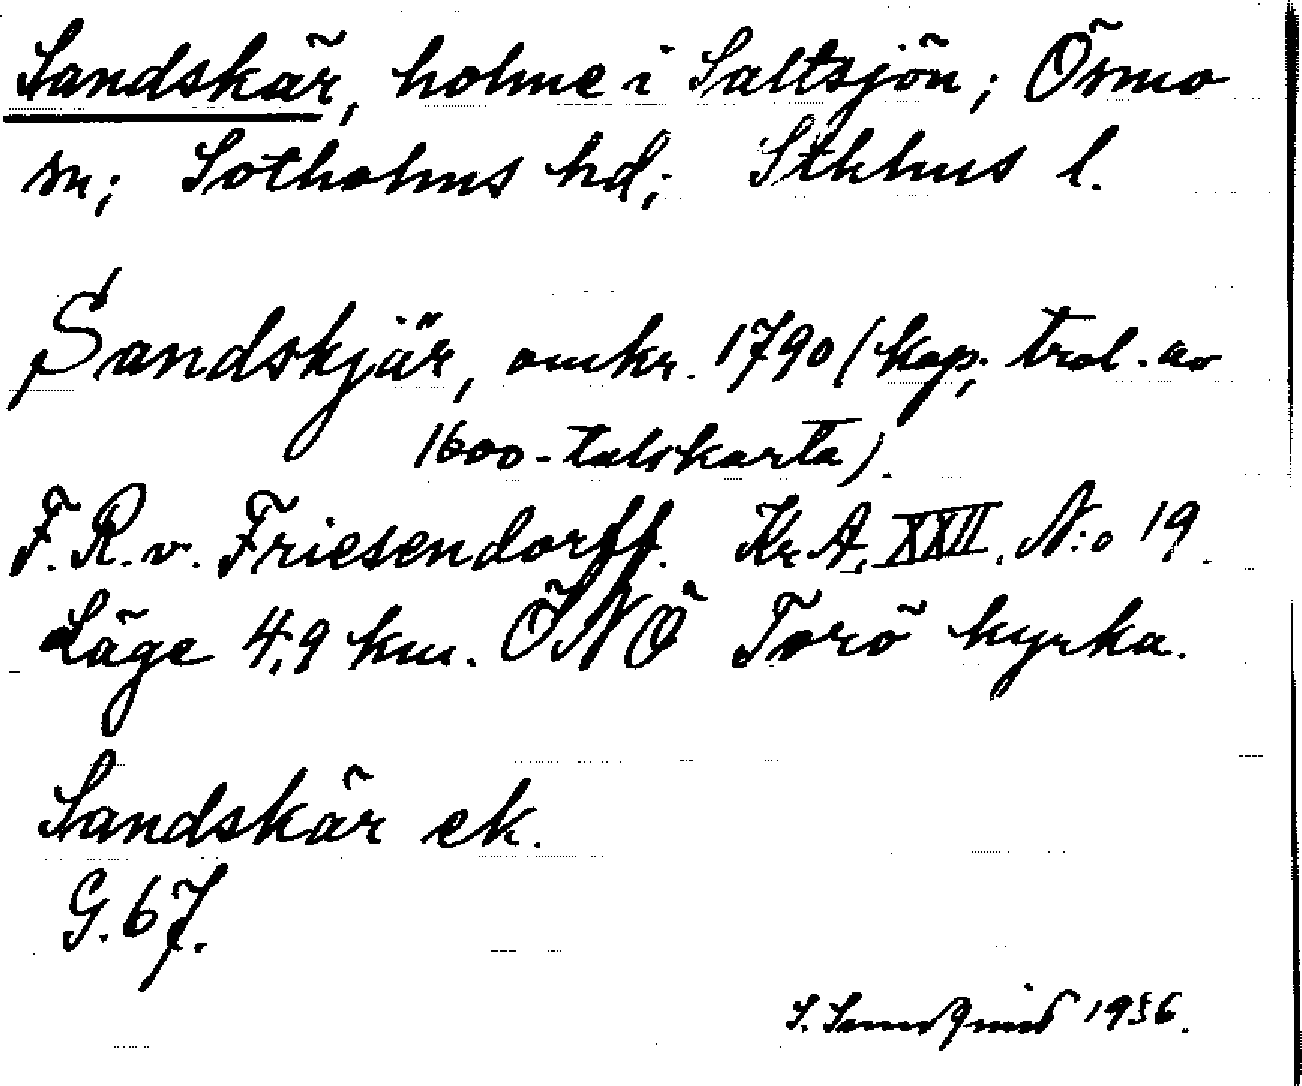 Sandskär, holme i Saltsjön; Ösmo
sn; Sotholms hd; Sthlms l.
Sandskjär, omkr. 1790 (kop; trol. av
1600-talskarta).
F. R. v. Friesendorff. Kr. A. XXII. N:o 19.
Läge 4,9 km. ÖNÖ Torö kyrka.
Sandskär ek.
G. 67.
S. Sundqvist 1936.